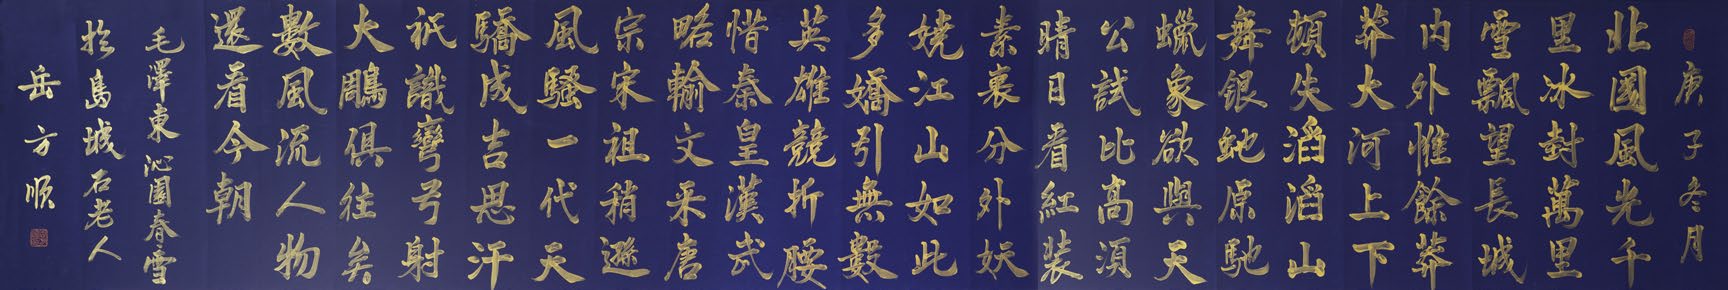 庚子冬月
北國風光千
里冰封萬里
雪飄望長城
内外惟餘莽
莽大河上下
頓失滔滔山
舞銀虵原馳
蠟象欲與天
公試比高須
晴日看紅裝
素裹分外妖
嬈江山如此
多嬌引無數
英雄競折腰
惜秦皇漢武
略輸文采唐
宗宋祖稍遜
風騷一代天
驕成吉思汗
祇識彎弓射
大鵰俱往矣
數風流人物
還看今朝
毛澤東沁園春雪
於島城石老人
岳方順